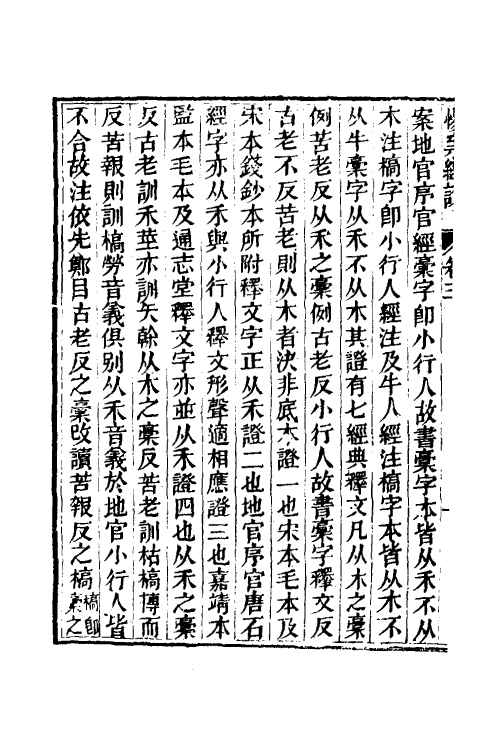 經說 卷三
案地官序官經稾字卽小行人故書稾字本皆从禾不从
木注槁字卽小行人經注及牛人經注槁字本皆从木不
从牛稾字从禾不从木其證有七經典釋文凡从木之槀
例苦老反从禾之稾例古老反小行人故書稾字釋文反
古老不反苦老則从木者決非底本證一也宋本毛本及
宋本錢鈔本所附釋文字正从禾證二也地官序官唐石
經字亦从禾與小行人釋文形聲適相應證三也嘉靖本
監本毛本及通志堂釋文字亦並从禾證四也从禾之稾
反古老訓禾莖亦訓矢榦从木之槀反苦老訓枯槁愽而
反苦報則訓槁勞音義俱别从禾音義於地官小行人皆
不合故注依先鄭目古老反之稾改讀苦報反之槁槁卽
稾之